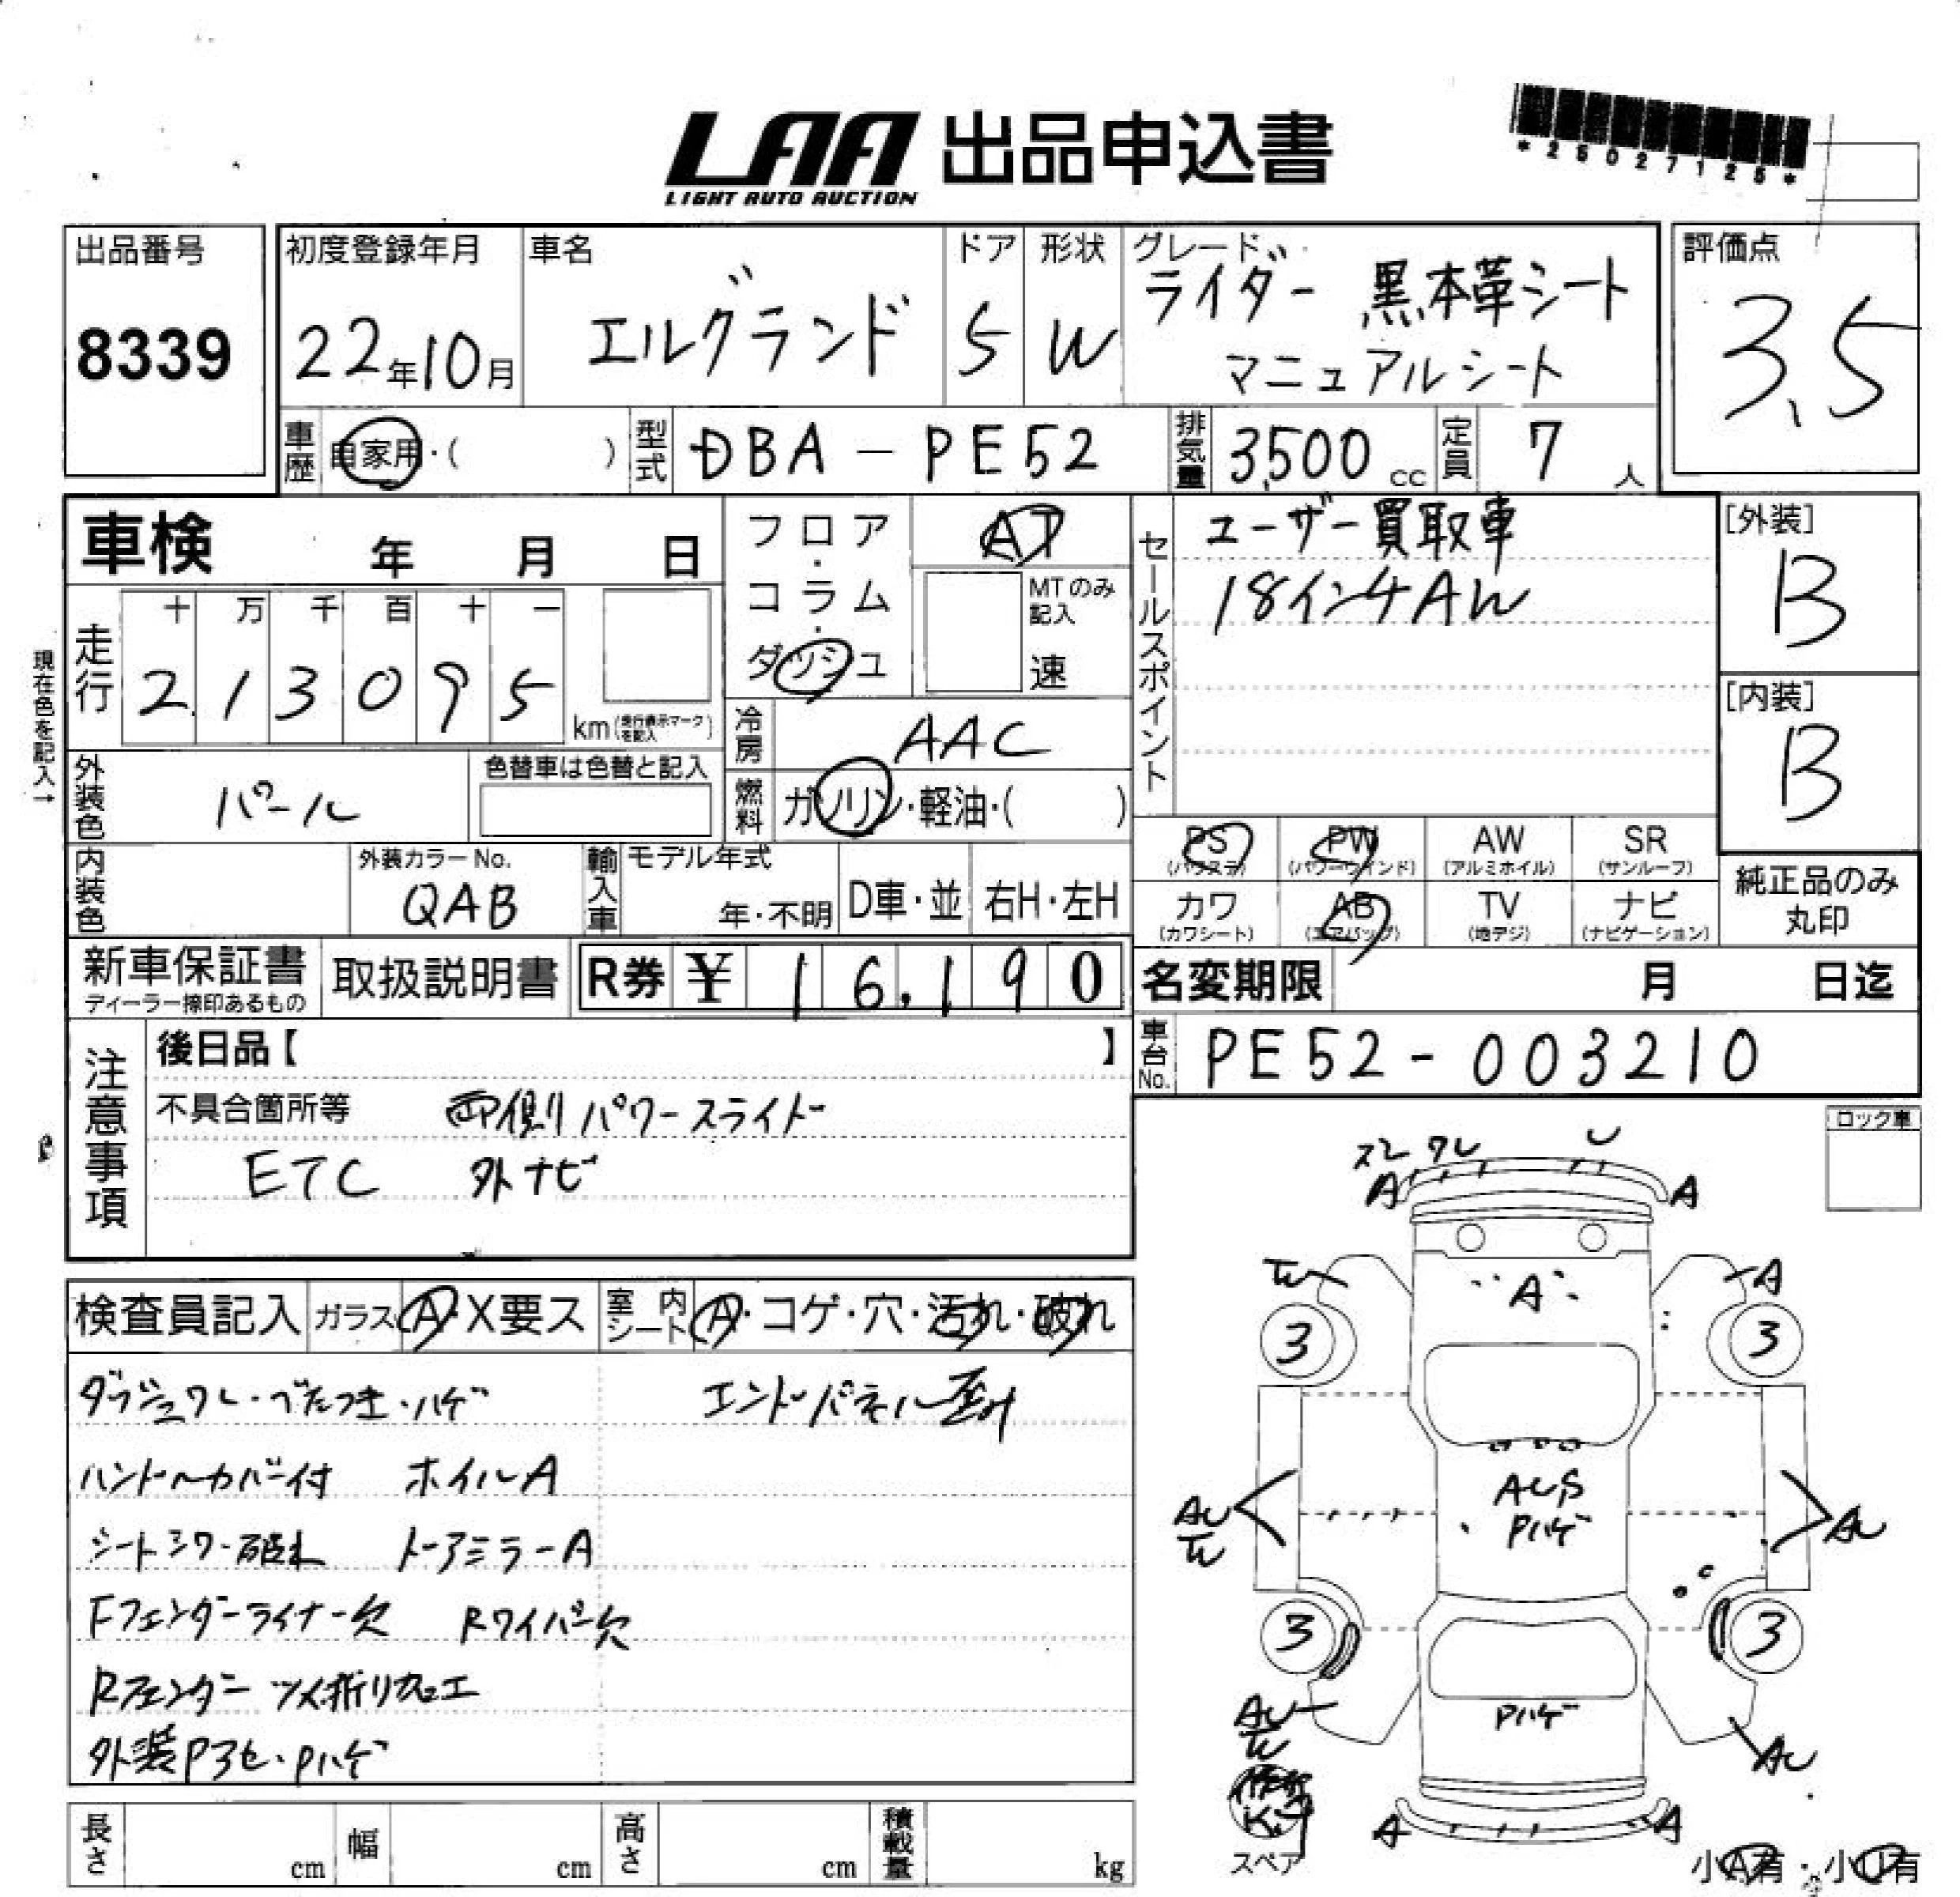 LAA 出品申込書
LIGHT AUTO AUCTION
*25027125*
出品番号
8339
初度登録年月
22年10月
車名
エルグランド
ドア
5
形状
W
グレード
ライダー 黒本革シート
マニュアルシート
評価点
3.5
車歴
自家用・( )
型式
DBA-PE52
排気量
3,500cc
定員
7人
車検 年 月 日
フロア・コラム・ダッシュ
AT
MTのみ記入
速
セールスポイント
ユーザー買取車
18インチAW
[外装]
B
[内装]
B
現在色を記入→
走行
十 万 千 百 十 一
213095
km(走行表示マークを記入)
冷房
AAC
燃料
ガソリン・軽油・( )
外装色
パール
色替車は色替と記入
内装色
外装カラーNo.
QAB
輸入車
モデル年式
年・不明
D車・並
右H・左H
PS (パワステ)
PW (パワーウインド)
AW (アルミホイル)
SR (サンルーフ)
カワ (カワシート)
AB (エアバッグ)
TV (地デジ)
ナビ (ナビゲーション)
純正品のみ丸印
新車保証書
ディーラー捺印あるもの
取扱説明書
R券 ¥ 16,190
名変期限 月 日迄
車台No.
PE52-003210
注意事項
後日品【 】
不具合箇所等 両側パワースライド
ETC 外ナビ
ロック車
検査員記入
ガラス A・X要ス
室内シート A・コゲ・穴・汚れ・破れ
ダッシュワレ・べたつき・ハゲ
エンドパネル歪み
ハンドルカバー付 ホイルA
シートシワ・破れ ドアミラーA
Fフェンダーライナー欠 Rワイパー欠
Rフェンダー ツメ折り加工
外装Pヤセ・Pハゲ
スレ ワレ U
A A
A
A
3 3
AUS
Pハゲ
AU
AU
3 3
Pハゲ
AU
AU
A A
スペア
小A有・小U有
長さ cm
幅 cm
高さ cm
積載量 kg